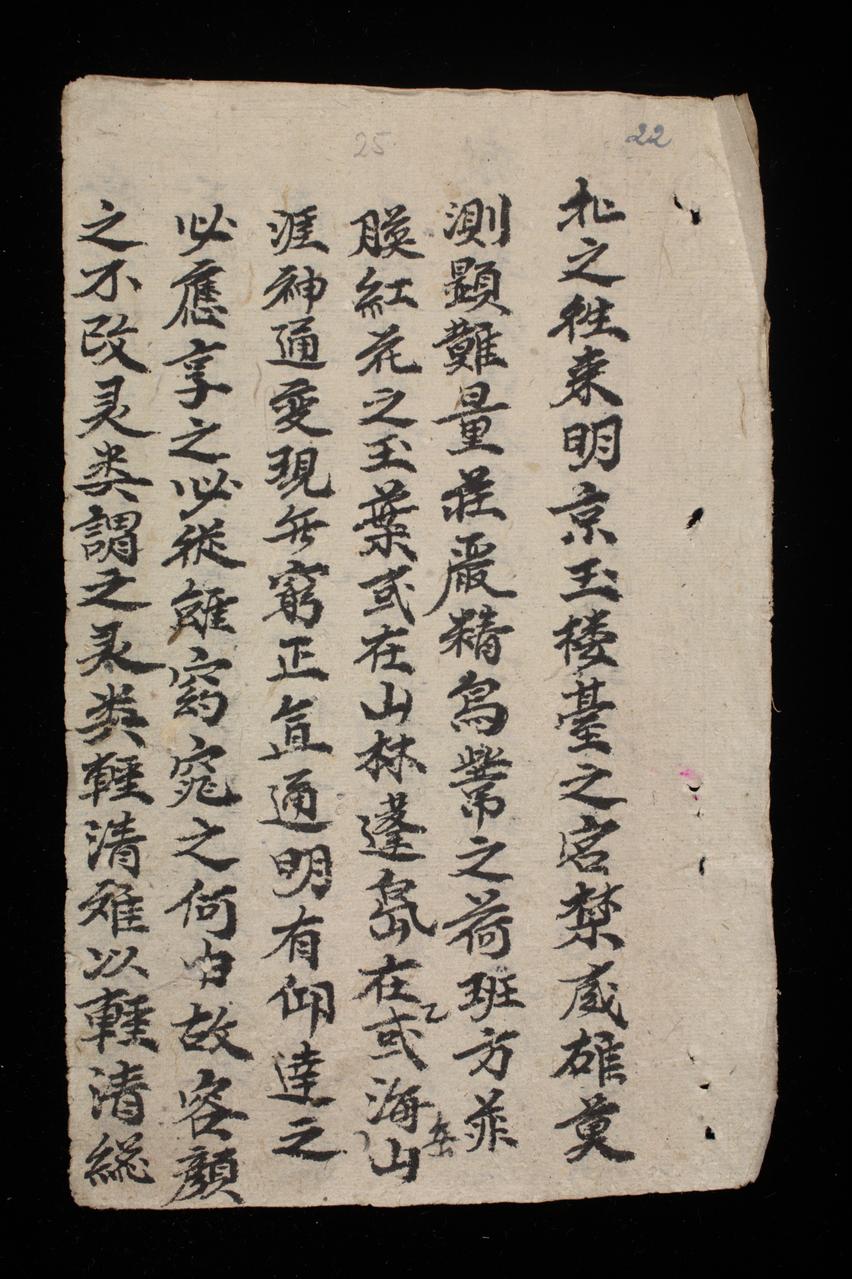 22
25
北之往来明京玉楼臺之宮禁威雄莫
測顕難量莊嚴精鳥鴬之荷班方並
膜紅花之玉葉或在山林蓬島在或海山
岳
涯神通变現无窮正直通明有仰達之
必應享之必從雖窈窕之何由故容顔
之不改灵类謂之灵类輕清难以輕清総